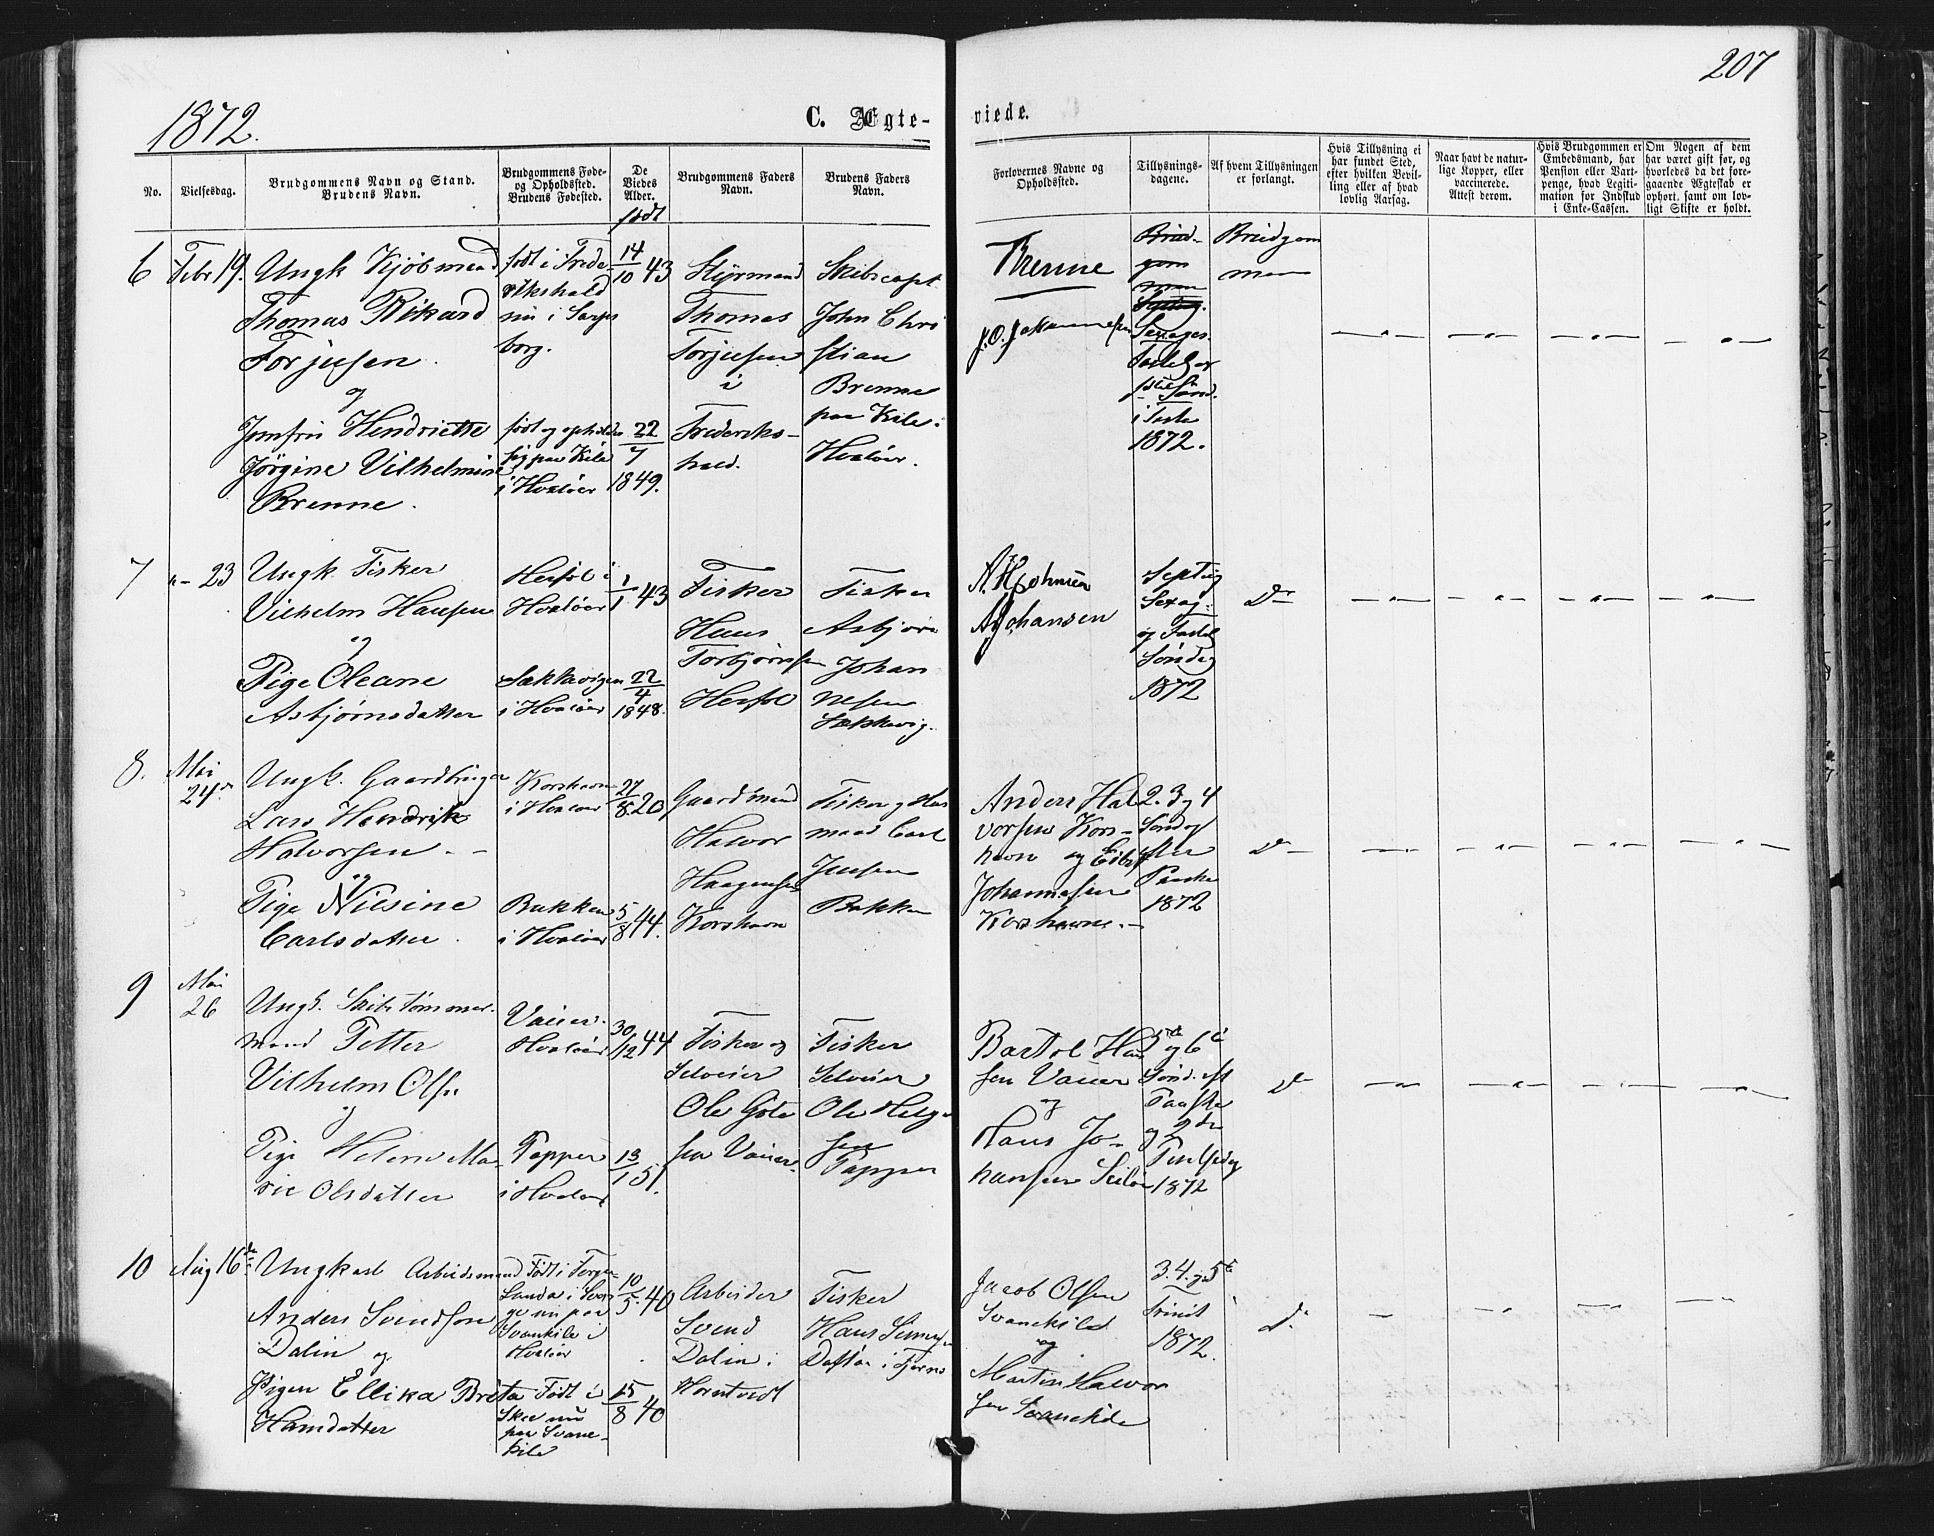 207
1872.
C. Ægte-
viede.
No.
Vielsesdag.
Brudgommens Navn og Stand.
Brudens Navn.
Brudgommens Føde-
og Opholdssted.
Brudens Fødested.
De
Viedes
Alder.
født
Brudgommens Faders
Navn.
Brudens Faders
Navn.
Forlovernes Navne og
Opholdssted.
Tillysnings-
dagene.
Af hvem Tillysningen
er forlangt.
Hvis Tillysning ei
har fundet Sted,
efter hvilken Bevil-
ling eller af hvad
lovlig Aarsag.
Naar havt de natur-
lige Kopper, eller
vaccinerede.
Attest derom.
Hvis Brudgommen er
Embedsmand, har
Pension eller Vart-
penge, hvad Legiti-
mation for Indskud
i Enke-Cassen.
Om Nogen af dem
har været gift før, og
hvorledes da det fore-
gaaende Ægteskab er
ophørt, samt om lov-
ligt Skifte er holdt.
6
Febr 19.
Ungk Kjøbmand
Thomas Rikard
Torjusen
og
Jomfru Henriette
Jørgine Vilhelmine
Brenne.
født i Frede-
rikshald
nu i Sarps
borg.
født og opholder
sig paa Kile
i Hvaløer
14/10 43
22/7
1849.
Styrmand
Thomas
Torjusen
i
Frederiks-
hald.
Skibscapt
John Chri
stian
Brenne
paa Kile i
Hvaløer.
Brenne
J. O. Johannesen
Brud-
gom
men
Sexages.
1872.
Brudgom
men
7
"- 23
Ungk. Fisker
Vilhelm Hansen
og
Pige Oleane
Asbjørnsdatter
Herføl i
Hvaløer
Sækkevigen
i Hvaløer
1/1 43
22/4
1848.
Fisker
Hans
Torbjørnsen
Herføl
Fisker
Asbjørn
Johan
nesen
Sækkevig.
A Johansen
Septug
Sexag:
og Fastel
Søndag
1872
Do
8.
Mai
24de
Ungk. Gaardbruger
Lars Hendrik
Halvorsen
og
Pige Nilsine
Carlsdatter.
Korshavn
i Hvaløer
Bakken
i Hvaløer
27/8 20
5/8 44.
Gaardmand
Halvor
Haagensen
Korshavn
Fisker og Hus
mand Carl
Jensen
Bakken
Anders Hal
vorsen Kors-
havn og
Johannesen
Korshavn.
2. 3 og 4
Søndag
efter
Paaske
1872
Do
9
Mai
26
Ungk. Skibstømmer-
mand Petter
Vilhelm Olsen
og
Pige Helene Ma-
rie Olsdatter
Vauer.
Hvaløer
Papper
i Hvaløer
30/12 44
13/1 51.
Fisker og
Selveier
Ole Gote
sen Vauer.
Fisker
Selveier
Ole Helge
sen
Papper
Bartol Han
sen Vauer
og
Hans Jo-
hansen
5te og 6te
Sønd. eft
Paaske
og 2den
1872
Do
10
Aug 16de
Ungkarl Arbeidsmand
Anders Svendsen
Dalin og
Pigen Ellika Brita
Hansdatter
Født i
nu paa
Svankile i
Hvaløer
Født i
Skee nu
paa Svane-
kile
10/5. 40
15/8 40
Arbeider
Svend
Dalin i
Fisker
Hans
Jacob Olsen
Svanekild
og
Martin Halvor
sen Svanekile
3. 4. og 5te
Trinit
1872.
Do